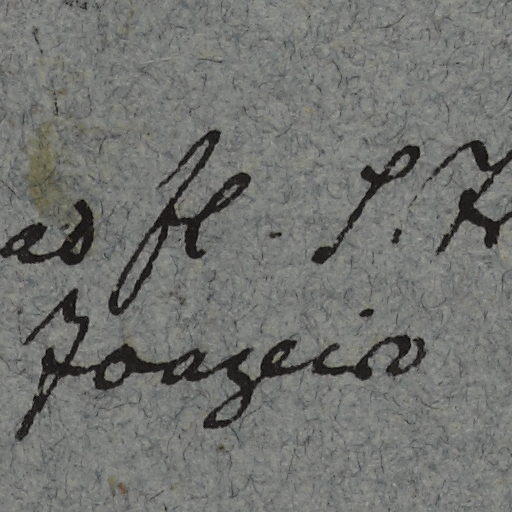 ad fl. S. F
Joazeiro